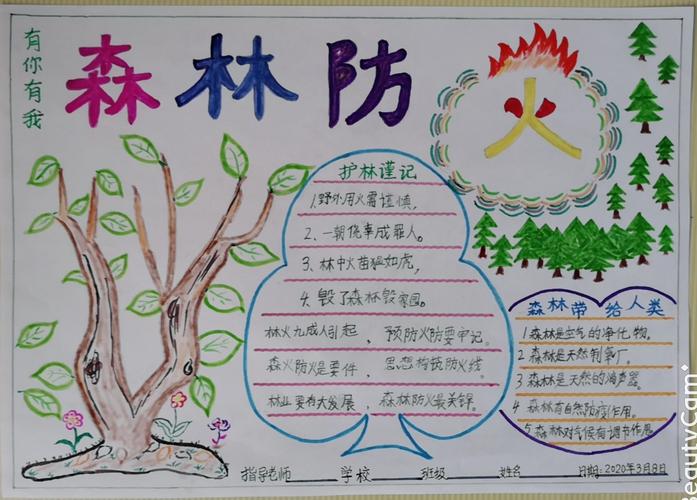 森林防火
有你有我
护林谨记
1.野外用火需谨慎,
2、一朝侥幸成罪人。
3、林中火苗猛如虎,
4.毁了森林毁家园。
林火九成人引起，预防火防要牢记。
森火防火是要件，思想构筑防火线。
林业要有大发展，森林防火最关键。
森林带给人类
1森林是空气的净化物。
2森林是天然制氧厂。
3森林是天然的消声器。
4森林有自然防疫作用。
5森林对气候有调节作用
指导老师 学校 班级 姓名 日期:2020年3月8日
eautyCam